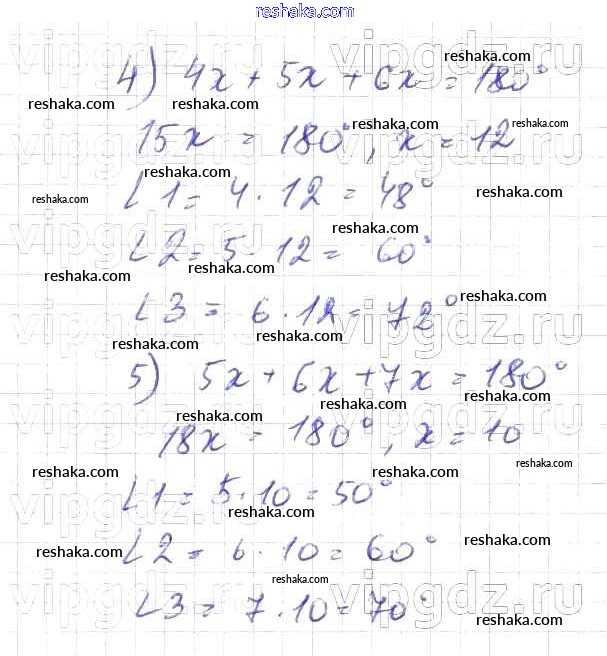 reshaka.com
4) 4x + 5x + 6x = 180°
15x = 180°, x = 12
∠1 = 4 · 12 = 48°
∠2 = 5 · 12 = 60°
∠3 = 6 · 12 = 72°
5) 5x + 6x + 7x = 180°
18x = 180°, x = 10
∠1 = 5 · 10 = 50°
∠2 = 6 · 10 = 60°
∠3 = 7 · 10 = 70°